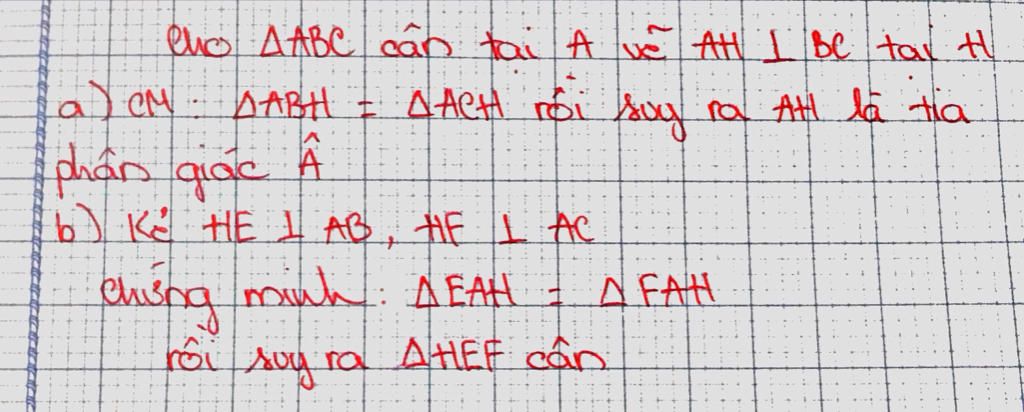 Cho ΔABC cân tại A vẽ AH ⊥ BC tại H
a) CM: ΔABH = ΔACH rồi suy ra AH là tia
phân giác Â
b) Kẻ HE ⊥ AB, HF ⊥ AC
chứng minh: ΔEAH = ΔFAH
rồi suy ra ΔHEF cân